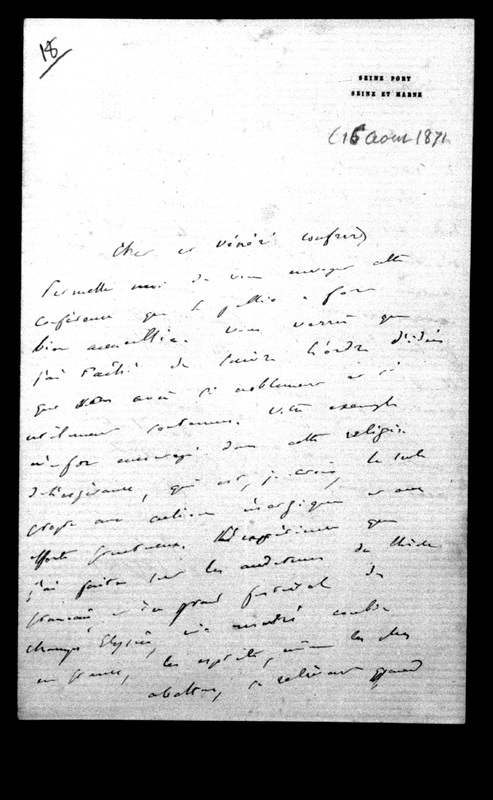 18
SEINE PORT
SEINE ET MARNE
(15 Aout 1871
Cher et vénéré confrère
Permettez moi de vous envoyer cette
conférence que le public a fort
bien accueillie. Vous verrez que
j'ai tâché de suivre l'ordre d'idées
que vous avez si noblement et si
utilement soutenues. Votre exemple
m'a fort encouragé dans cette religion
de l'espérance, qui est, je crois, la seule
propre aux actions énergiques et aux
efforts fructueux. L'expérience que
j'ai faite sur les auditeurs du théâtre
français et du grand festival des
champs Elysées, m'a montré combien
en france, les esprits, même les plus
abattus, se relèvent quand